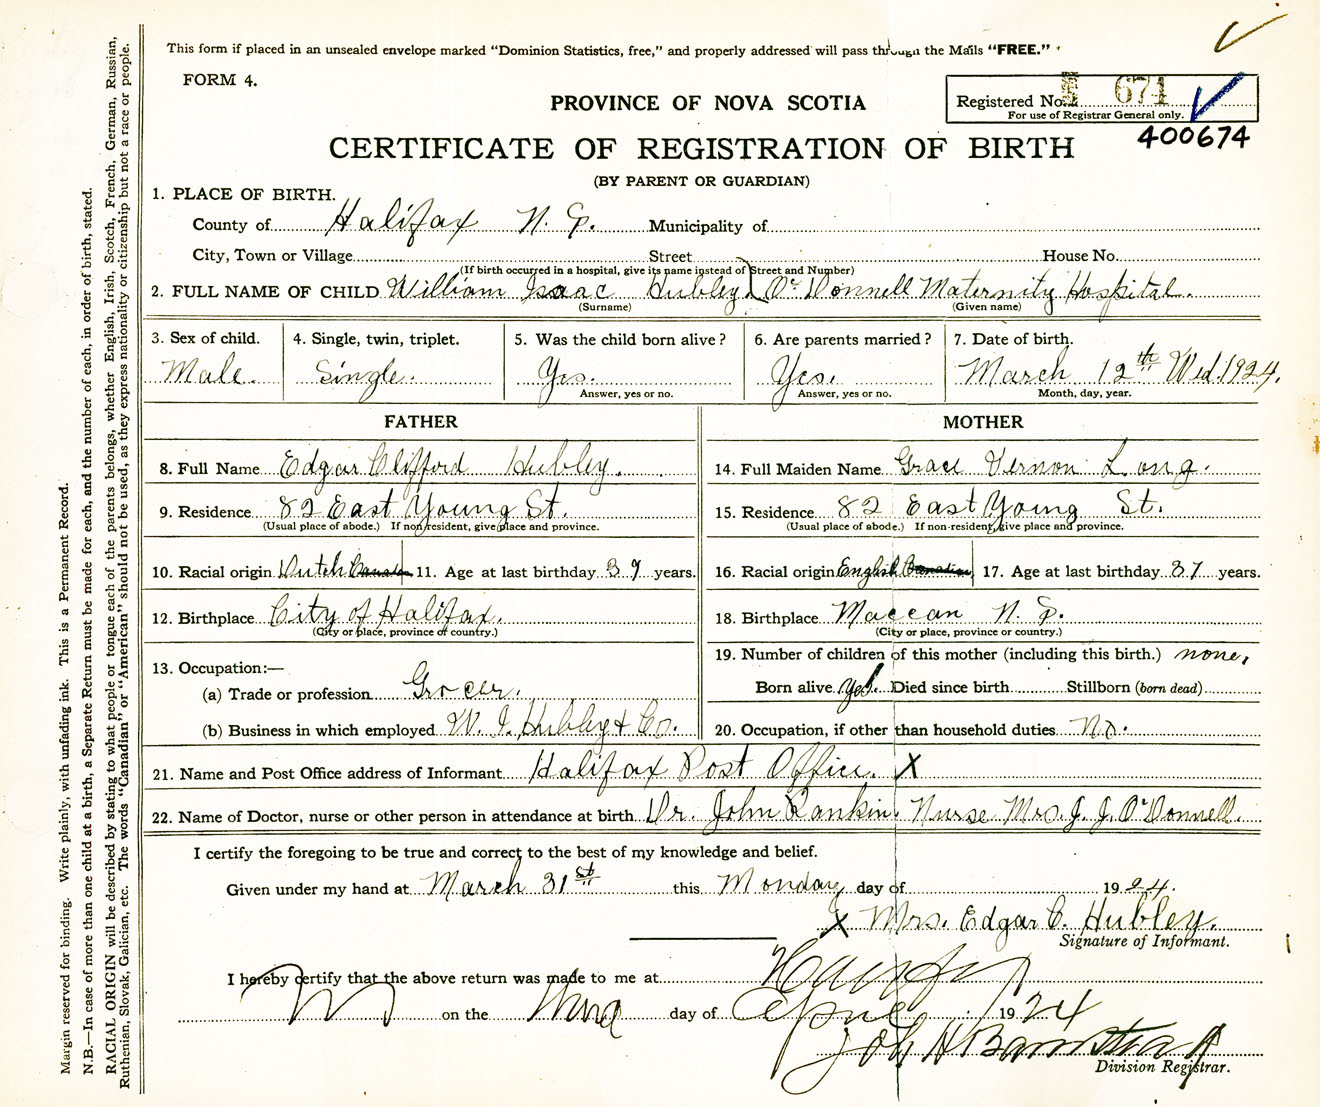 This form if placed in an unsealed envelope marked "Dominion Statistics, free," and properly addressed will pass through the Mails "FREE."
FORM 4.
Registered No. 674
For use of Registrar General only.
400674
PROVINCE OF NOVA SCOTIA
CERTIFICATE OF REGISTRATION OF BIRTH
(BY PARENT OR GUARDIAN)
1. PLACE OF BIRTH.
County of Halifax N. S. Municipality of
City, Town or Village Street House No.
(If birth occurred in a hospital, give its name instead of Street and Number)
2. FULL NAME OF CHILD William Isaac Hubley. O'Donnell Maternity Hospital.
(Surname) (Given name)
3. Sex of child. 4. Single, twin, triplet. 5. Was the child born alive? 6. Are parents married? 7. Date of birth.
Male. Single. Yes. Yes. March 12th Wed. 1924.
Answer, yes or no. Answer, yes or no. Month, day, year.
FATHER MOTHER
8. Full Name Edgar Clifford Hubley. 14. Full Maiden Name Grace Vernon Long.
9. Residence 82 East Young St. 15. Residence 82 East Young St.
(Usual place of abode.) If non-resident, give place and province. (Usual place of abode.) If non-resident, give place and province.
10. Racial origin Dutch Canadian 11. Age at last birthday 37 years. 16. Racial origin English Canadian 17. Age at last birthday 37 years.
12. Birthplace City of Halifax. 18. Birthplace Maccan N. S.
(City or place, province or country.) (City or place, province or country.)
13. Occupation:— 19. Number of children of this mother (including this birth.) none.
(a) Trade or profession Grocer. Born alive Yes. Died since birth Stillborn (born dead)
(b) Business in which employed W. I. Hubley & Co. 20. Occupation, if other than household duties No.
21. Name and Post Office address of Informant Halifax Post Office. X
22. Name of Doctor, nurse or other person in attendance at birth Dr. John Rankin. Nurse Mrs. J. J. O'Donnell.
I certify the foregoing to be true and correct to the best of my knowledge and belief.
Given under my hand at March 31st this Monday day of 1924.
X Mrs. Edgar C. Hubley.
Signature of Informant.
I hereby certify that the above return was made to me at Halifax
NS on the Third day of April 1924
Division Registrar.
Margin reserved for binding. Write plainly, with unfading ink. This is a Permanent Record.
N.B.—In case of more than one child at a birth, a Separate Return must be made for each, and the number of each, in order of birth, stated.
RACIAL ORIGIN will be described by stating to what people or tongue each of the parents belongs, whether English, Irish, Scotch, French, German, Russian,
Ruthenian, Slovak, Galician, etc. The words "Canadian" or "American" should not be used, as they express nationality or citizenship but not a race or people.